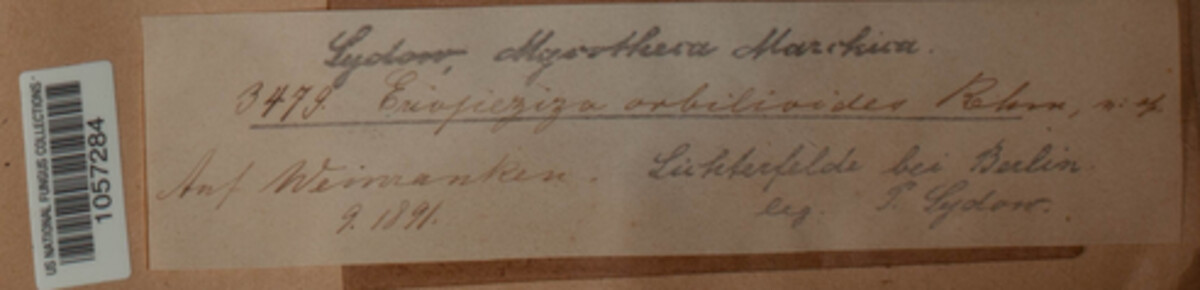 US NATIONAL FUNGUS COLLECTIONS
1057284
Sydow, Mycotheca Marchica.
3479. Eriopeziza orbilioides Rehm, n. sp.
Auf Weinranken.
9. 1891.
Lichterfelde bei Berlin.
leg. P. Sydow.